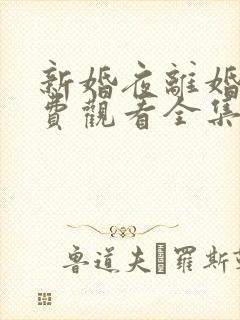 新婚夜離婚
費觀看全集
魯道夫·羅斯